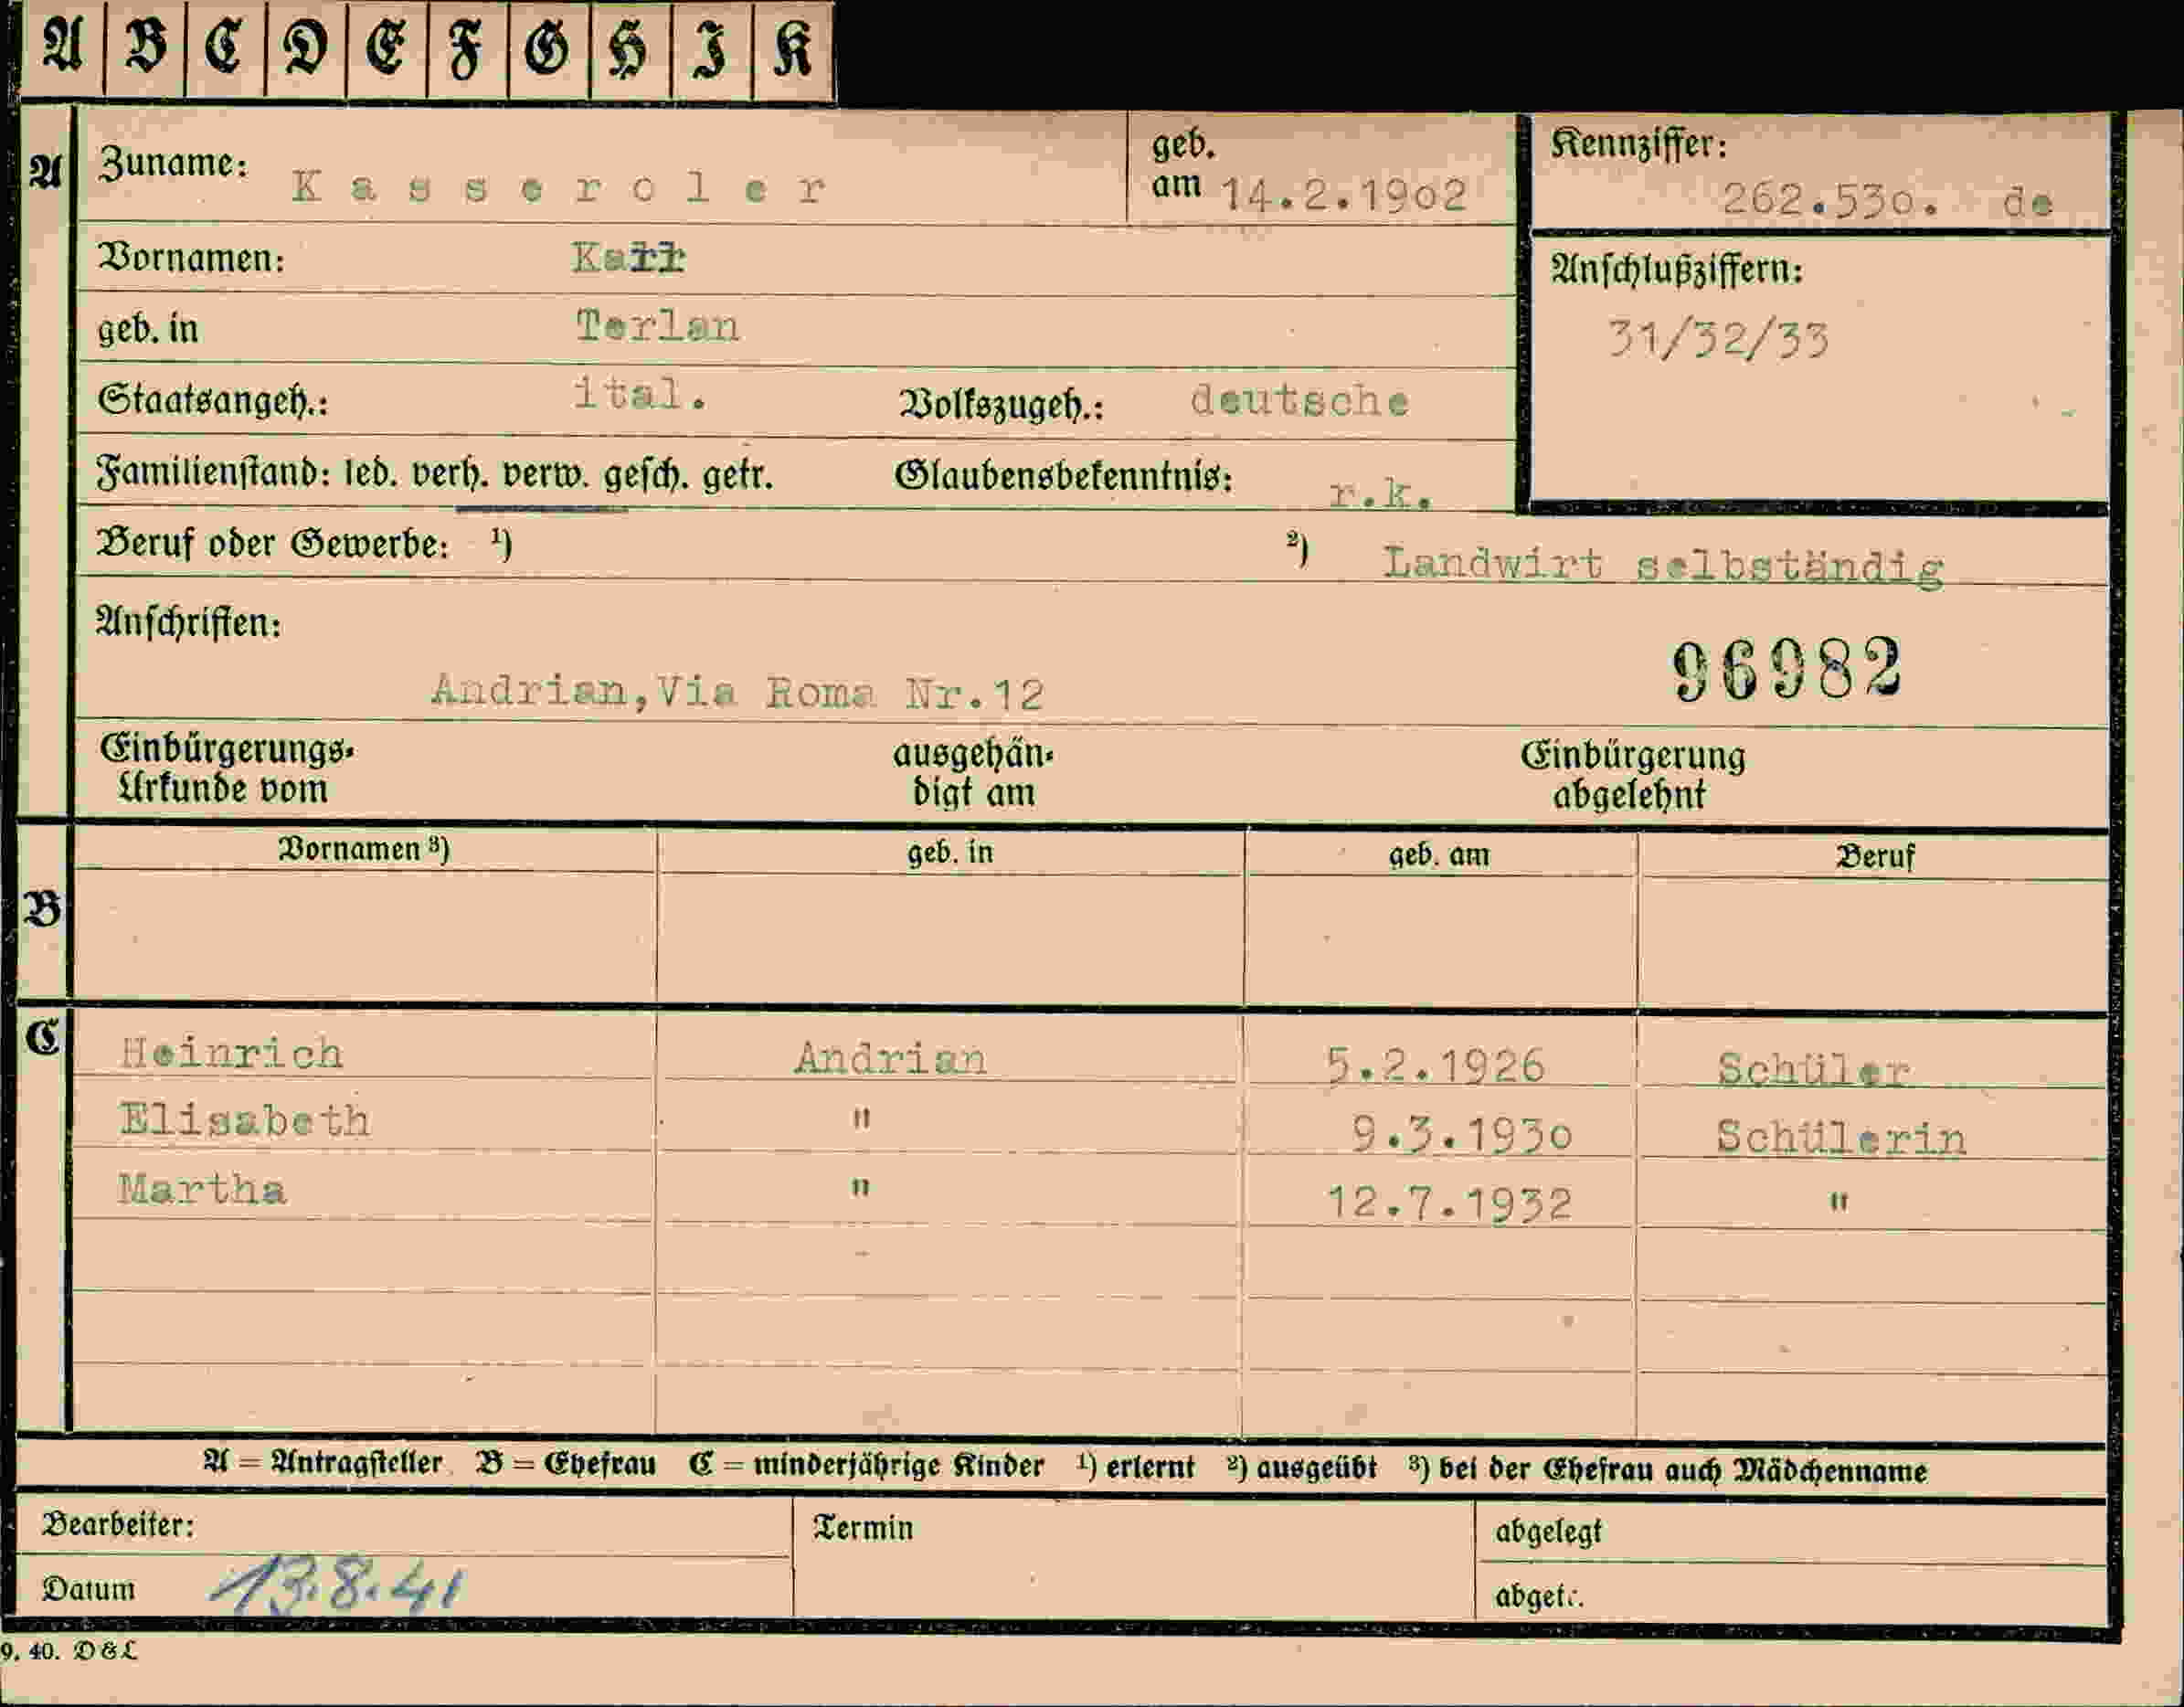 A B C D E F G H I K
A
Zuname: Kasseroler geb. am 14.2.1902
Kennziffer: 262.530. de
Vornamen: Karl
Anschlußziffern:
geb. in Terlan
31/32/33
Staatsangeh.: ital. Volkszugeh.: deutsche
Familienstand: led. verh. verw. gesch. getr. Glaubensbekenntnis: r.k.
Beruf oder Gewerbe: ¹) ²) Landwirt selbständig
Anschriften:
96982
Andrian,Via Roma Nr.12
Einbürgerungs- ausgehän- Einbürgerung
Urkunde vom digt am abgelehnt
Vornamen ³) geb. in geb. am Beruf
B
C
Heinrich Andrian 5.2.1926 Schüler
Elisabeth " 9.3.1930 Schülerin
Martha " 12.7.1932 "
A = Antragsteller B = Ehefrau C = minderjährige Kinder ¹) erlernt ²) ausgeübt ³) bei der Ehefrau auch Mädchenname
Bearbeiter: Termin abgelegt
Datum 13.8.41 abget.:
9. 40. D&L